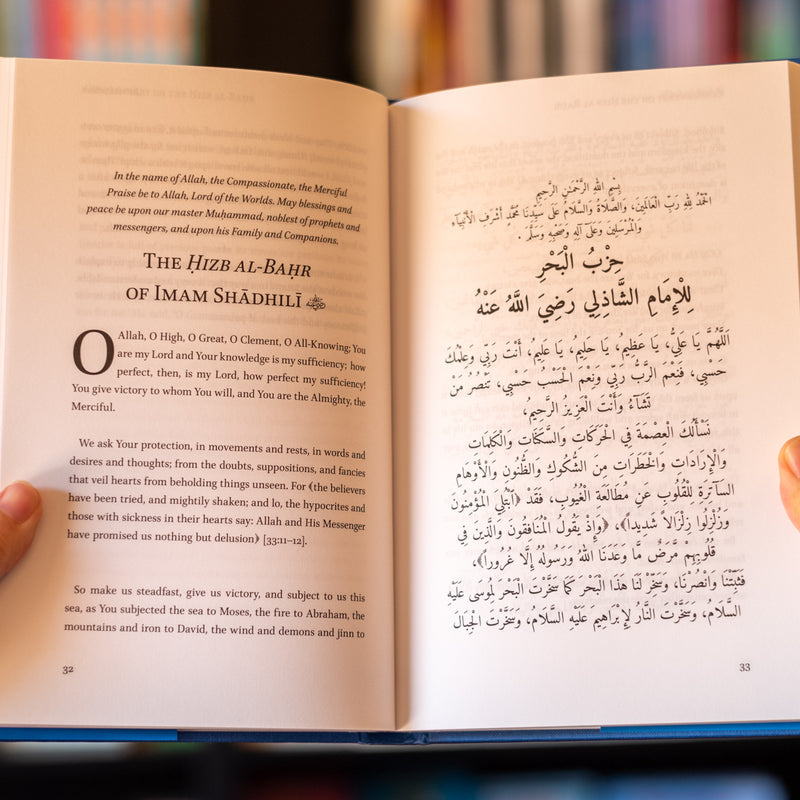 In the name of Allah, the Compassionate, the Merciful
Praise be to Allah, Lord of the Worlds. May blessings and
peace be upon our master Muhammad, noblest of prophets and
messengers, and upon his Family and Companions.
The Ḥizb al-Baḥr
of Imam Shādhilī
O Allah, O High, O Great, O Clement, O All-Knowing; You
are my Lord and Your knowledge is my sufficiency; how
perfect, then, is my Lord, how perfect my sufficiency!
You give victory to whom You will, and You are the Almighty, the
Merciful.
We ask Your protection, in movements and rests, in words and
desires and thoughts; from the doubts, suppositions, and fancies
that veil hearts from beholding things unseen. For ﴾the believers
have been tried, and mightily shaken; and lo, the hypocrites and
those with sickness in their hearts say: Allah and His Messenger
have promised us nothing but delusion﴿ [33:11–12].
So make us steadfast, give us victory, and subject to us this
sea, as You subjected the sea to Moses, the fire to Abraham, the
mountains and iron to David, the wind and demons and jinn to
32
بِسْمِ اللهِ الرَّحْمٰنِ الرَّحِيْمِ
الْحَمْدُ لِلّٰهِ رَبِّ الْعَالَمِيْنَ، وَالصَّلَاةُ وَالسَّلَامُ عَلَى سَيِّدِنَا مُحَمَّدٍ أَشْرَفِ الْأَنْبِيَآءِ
وَالْمُرْسَلِيْنَ وَعَلَى آلِهِ وَصَحْبِهِ وَسَلَّمَ .
حِزْبُ الْبَحْرِ
لِلْإِمَامِ الشَّاذِلِي رَضِيَ اللَّهُ عَنْهُ
اَللَّهُمَّ يَا عَلِيُّ، يَا عَظِيْمُ، يَا حَلِيْمُ، يَا عَلِيْمُ، أَنْتَ رَبِّي وَعِلْمُكَ
حَسْبِي، فَنِعْمَ الرَّبُّ رَبِّي وَنِعْمَ الْحَسْبُ حَسْبِي، تَنْصُرُ مَنْ
تَشَآءُ وَأَنْتَ الْعَزِيزُ الرَّحِيْمُ،
نَسْأَلُكَ الْعِصْمَةَ فِي الْحَرَكَاتِ وَالسَّكَنَاتِ وَالْكَلِمَاتِ
وَالْإِرَادَاتِ وَالْخَطَرَاتِ مِنَ الشُّكُوكِ وَالظُّنُونِ وَالْأَوْهَامِ
السَّآتِرَةِ لِلْقُلُوبِ عَنِ مُطَالَعَةِ الْغُيُوبِ، فَقَدْ ﴿اُبْتُلِيَ الْمُؤْمِنُونَ
وَزُلْزِلُوا زِلْزَالاً شَدِيْداً﴾، ﴿وَإِذْ يَقُولُ الْمُنَافِقُونَ وَالَّذِينَ فِي
قُلُوبِهِمْ مَّرَضٌ مَّا وَعَدَنَا اللهُ وَرَسُولُهُ إِلَّا غُرُوراً﴾،
فَثَبِّتْنَا وَانْصُرْنَا، وَسَخِّرْ لَنَا هَذَا الْبَحْرَ كَمَا سَخَّرْتَ الْبَحْرَ لِمُوسَى عَلَيْهِ
السَّلَامُ، وَسَخَّرْتَ النَّارَ لِإِبْرَاهِيمَ عَلَيْهِ السَّلَامُ، وَسَخَّرْتَ الْجِبَالَ
33